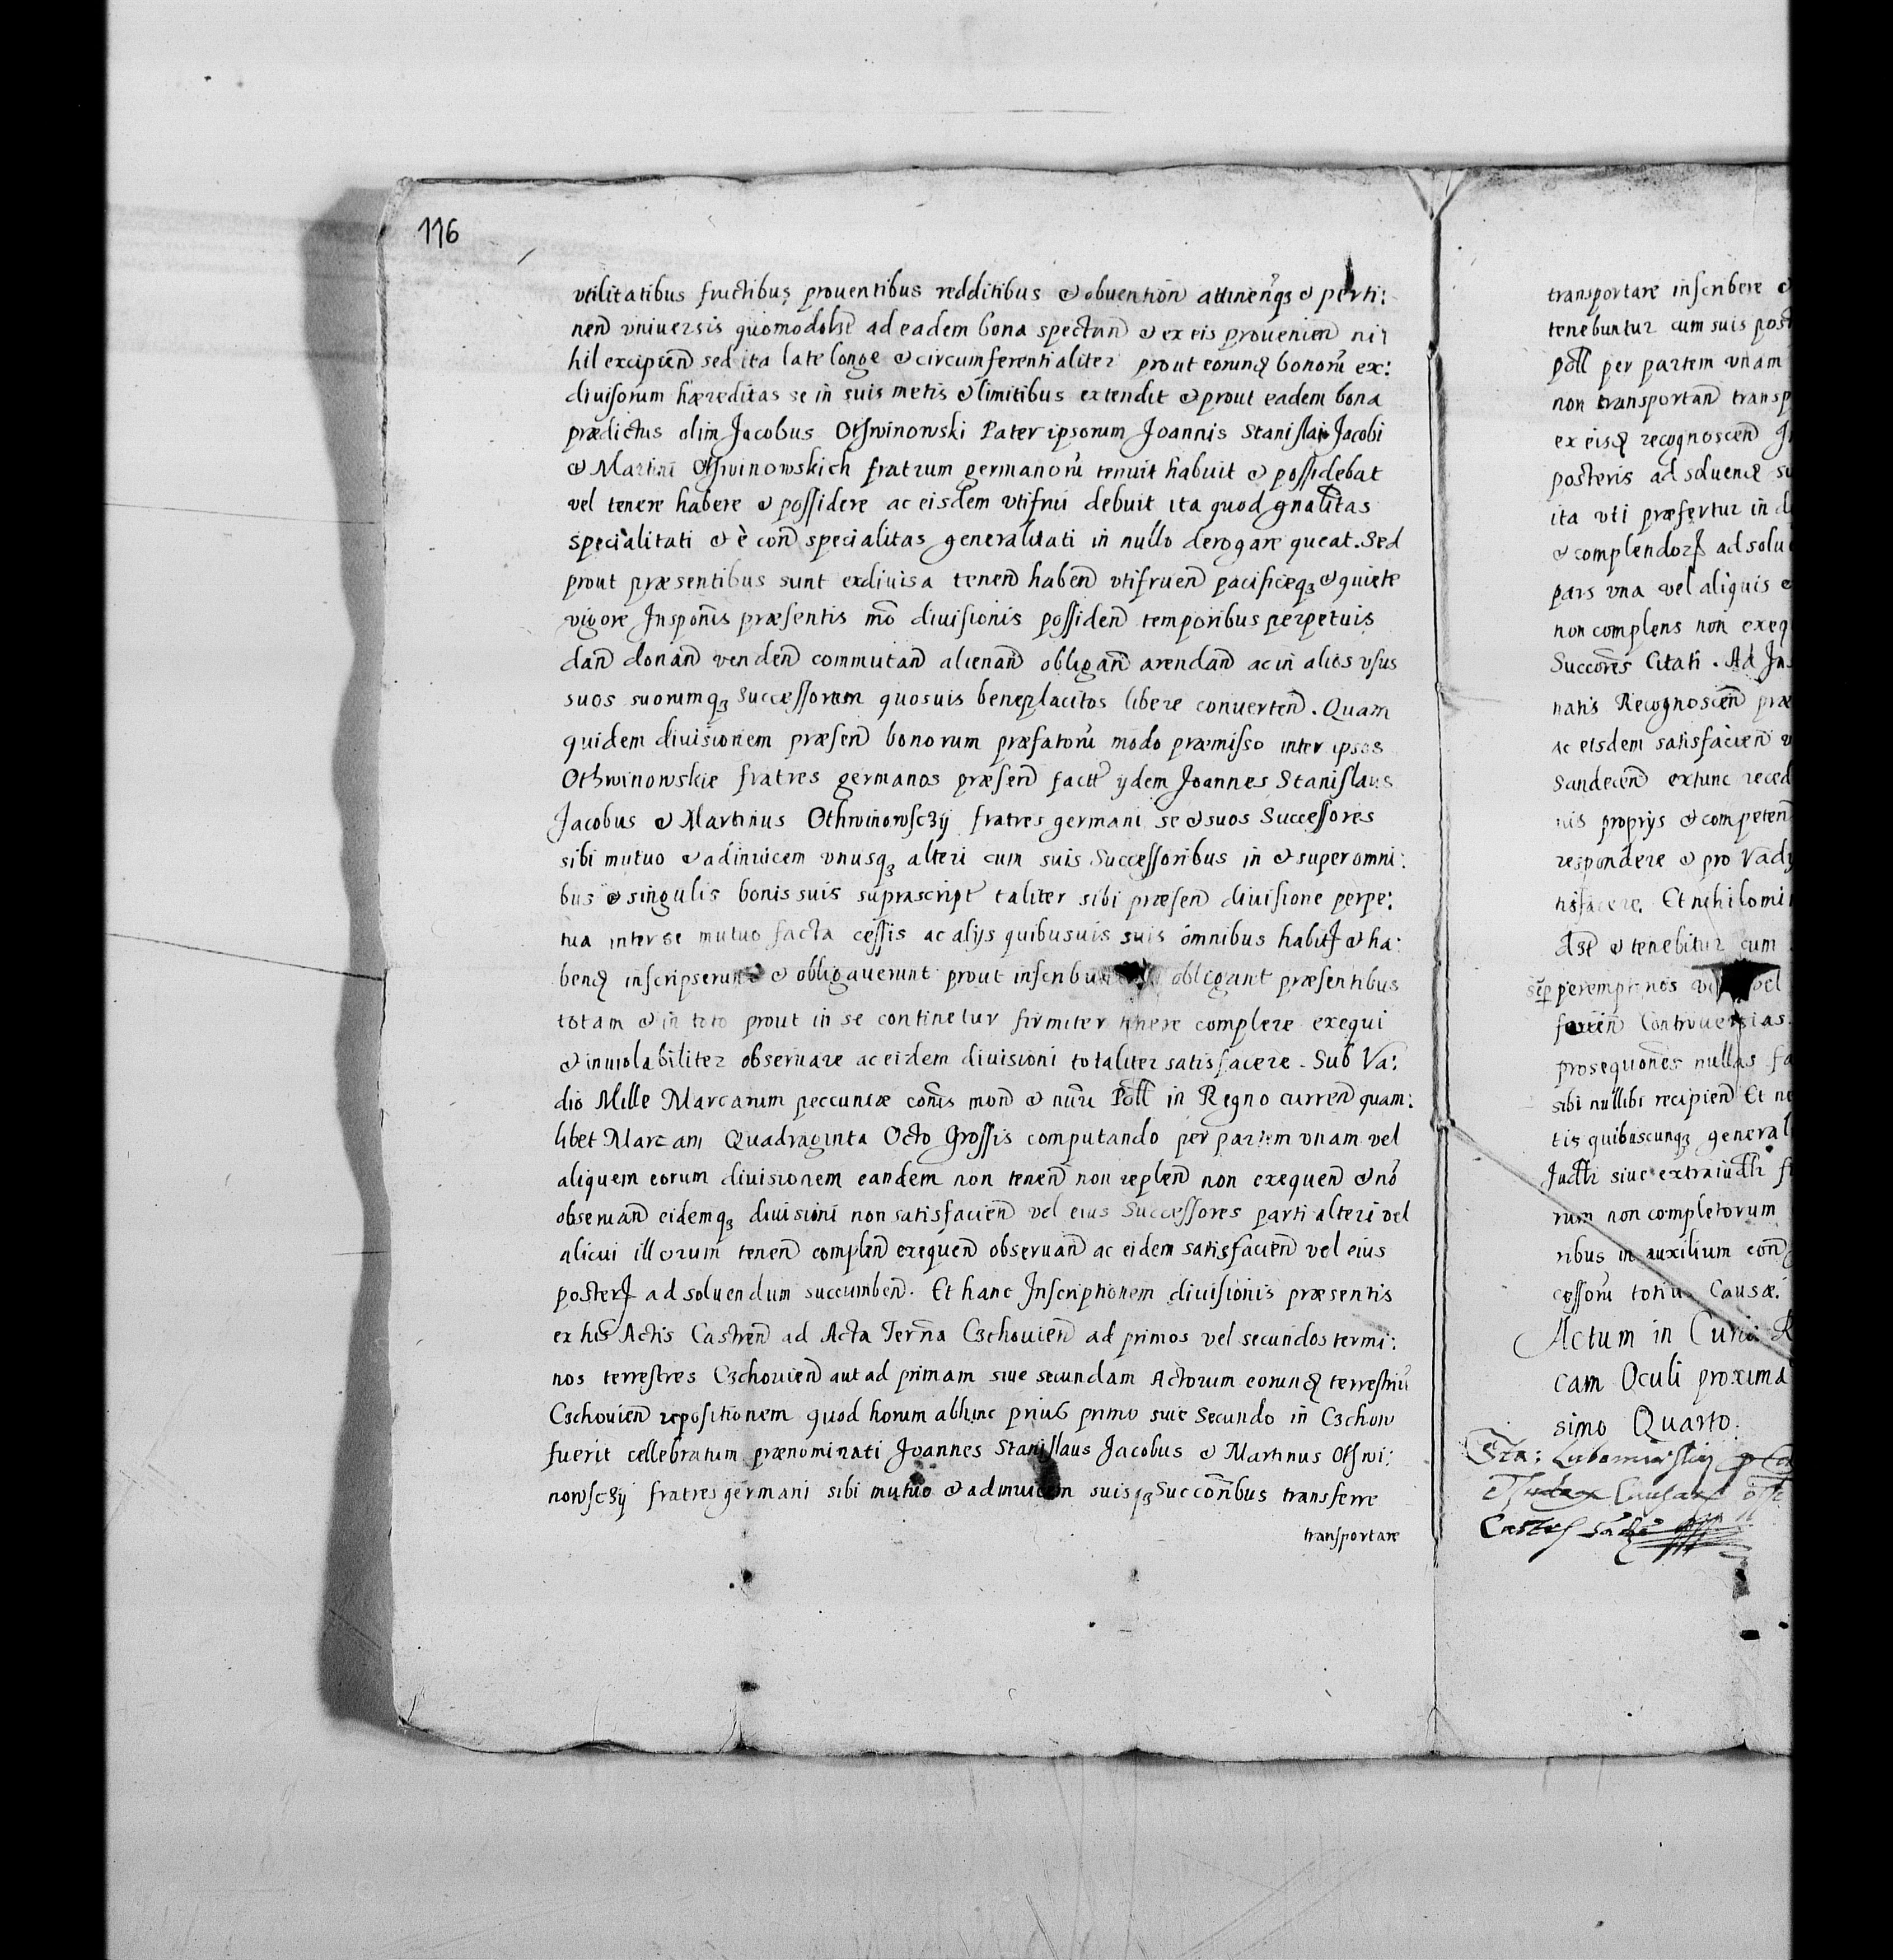 116
vtilitatibus fructibus prouentibus redditibus & obuention̄ attinen̄q3 & perti:
nen̄ vniuersis quomodolꝫt ad eadem bona spectan̄ & ex eis prouenien̄ ni
hil excipien̄ sed ita late longe & circumferentialiter prout eorundꝫ bonorū ex:
diuisorum hæreditas se in suis metis & limitibus extendit & prout eadem bona
prædictus olim Jacobus Othwinowski Pater ipsorum Joannis Stanislai Jacobi
& Martini Othwinowskich fratrum germanorū tenuit habuit & possidebat
vel tenere habere & possidere ac eisdem vtifrui debuit ita quod gn̄alitas
specialitati & è con̄ specialitas generalitati in nullo derogare queat. Sed
prout præsentibus sunt exdiuisa tenen̄ haben̄ vtifruen̄ pacificeq3 & quiete
vigore Insponīs præsentis mō diuisionis possiden̄ temporibus perpetuis
dan̄ donan̄ venden̄ commutan̄ alienan̄ obligan̄ arendan̄ ac in alios vsus
suos suorumq3 Successorum quosuis beneplacitos libere conuerten̄. Quam
quidem diuisionem præsen̄ bonorum præfatorū modo præmisso inter ipsos
Othwinowskie fratres germanos præsen̄ fact̄ ijdem Joannes Stanislaus
Jacobus & Martinus Othwinowsc3ij fratres germani se & suos Successores
sibi mutuo & adinuicem vnusq3 alteri cum suis Successoribus in & super omni:
bus & singulis bonis suis suprascript̄ taliter sibi præsen̄ diuisione perpe:
tua inter se mutuo facta cessis ac alijs quibusuis suis omnibus habitꝭ & ha:
bendꝭ inscripserunt & obligauerunt prout inscribunt obligant præsentibus
totam & in toto prout in se continetur firmiter tenere complere exequi
& inuiolabiliter obseruare ac eidem diuisioni totaliter satisfacere. Sub Va:
dio Mille Marcarum peccuniæ con̄is mon̄ & nūri Poll̄ in Regno curren̄ quam:
libet Marcam Quadraginta Octo Grossis computando per partem vnam vel
aliquem eorum diuisionem eandem non tenen̄ non replen̄ non exequen̄ & nō
obseruan̄ eidemq3 diuisioni non satisfacien̄ vel eius Successores parti alteri vel
alicui illorum tenen̄ complen̄ exequen̄ obseruan̄ ac eidem satisfacien̄ vel eius
posterꝭ ad soluendum succumben̄. Et hanc Inscriptionem diuisionis præsentis
ex his Actis Castren̄ ad Acta Terrn̄a C3chouien̄ ad primos vel secundos termi:
nos terrestres C3chouien̄ aut ad primam siue secundam Actorum eorundꝫ terrestriū
C3chouien̄ repositionem quod horum abhinc prius primo siue Secundo in C3chow
fuerit cellebratum prænominati Joannes Stanislaus Jacobus & Martinus Othwi:
nowsc3ij fratres germani sibi mutuo & adinuicem suisq3 Succoribus transferre
transportare
transportare inscribere &
tenebuntur cum suis post
poll̄ per partem vnam
non transportan̄ transp
ex eisdꝫ recognoscen̄ In
posteris ad soluendꝭ su
ita vti præfertur in d
& complendorꝭ ad solu
pars vna vel aliquis &
non complens non exeq
Succores Citati. Ad Ins
natis Recognoscen̄ præ
ac eisdem satisfacien̄ v
Sandecen̄ extunc reced
nis proprijs & competen̄
respondere & pro Vadi
tisfacere. Et nihilomi
& tenebitur cum
peremptorios vel
Controuersias.
prosequones nullas fa
sibi nullibi recipien̄ Et no
tis quibuscunq3 general
Judtr siue extraiudtr f
rum non completorum
ribus in auxilium con̄
cessorū totius Causæ.
Actum in Curia R
cam Oculi proxima
simo Quarto.
Sta: Lubomirskij